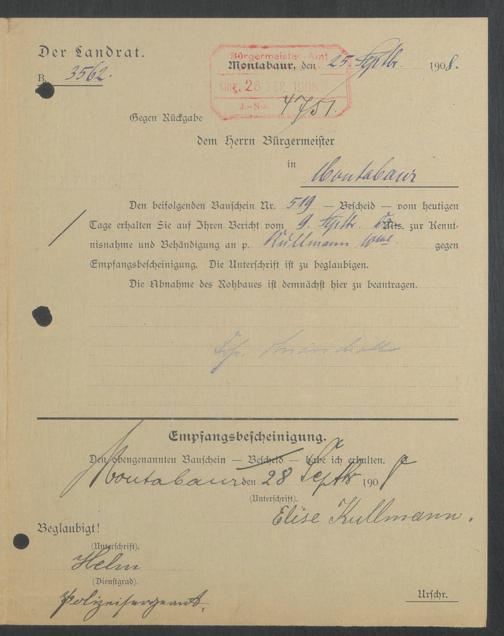 Der Landrat.
Bürgermeister-Amt
Montabaur, den 25. Septbr. 1908.
B. 3562.
28
J.-No. 4751
Gegen Rückgabe
dem Herrn Bürgermeister
in
Montabaur
Den beifolgenden Bauschein Nr. 519 — Bescheid — vom heutigen
Tage erhalten Sie auf Ihren Bericht vom 9. Septbr. Mts. zur Kennt-
nisnahme und Behändigung an p. Kullmann gegen
Empfangsbescheinigung. Die Unterschrift ist zu beglaubigen.
Die Abnahme des Rohbaues ist demnächst hier zu beantragen.
Empfangsbescheinigung.
Den obengenannten Bauschein — Bescheid — habe ich erhalten.
Montabaur den 28 Septbr 1908
(Unterschrift).
Elise Kullmann.
Beglaubigt!
(Unterschrift).
Helm
(Dienstgrad).
Polizeisergeant.
Urschr.